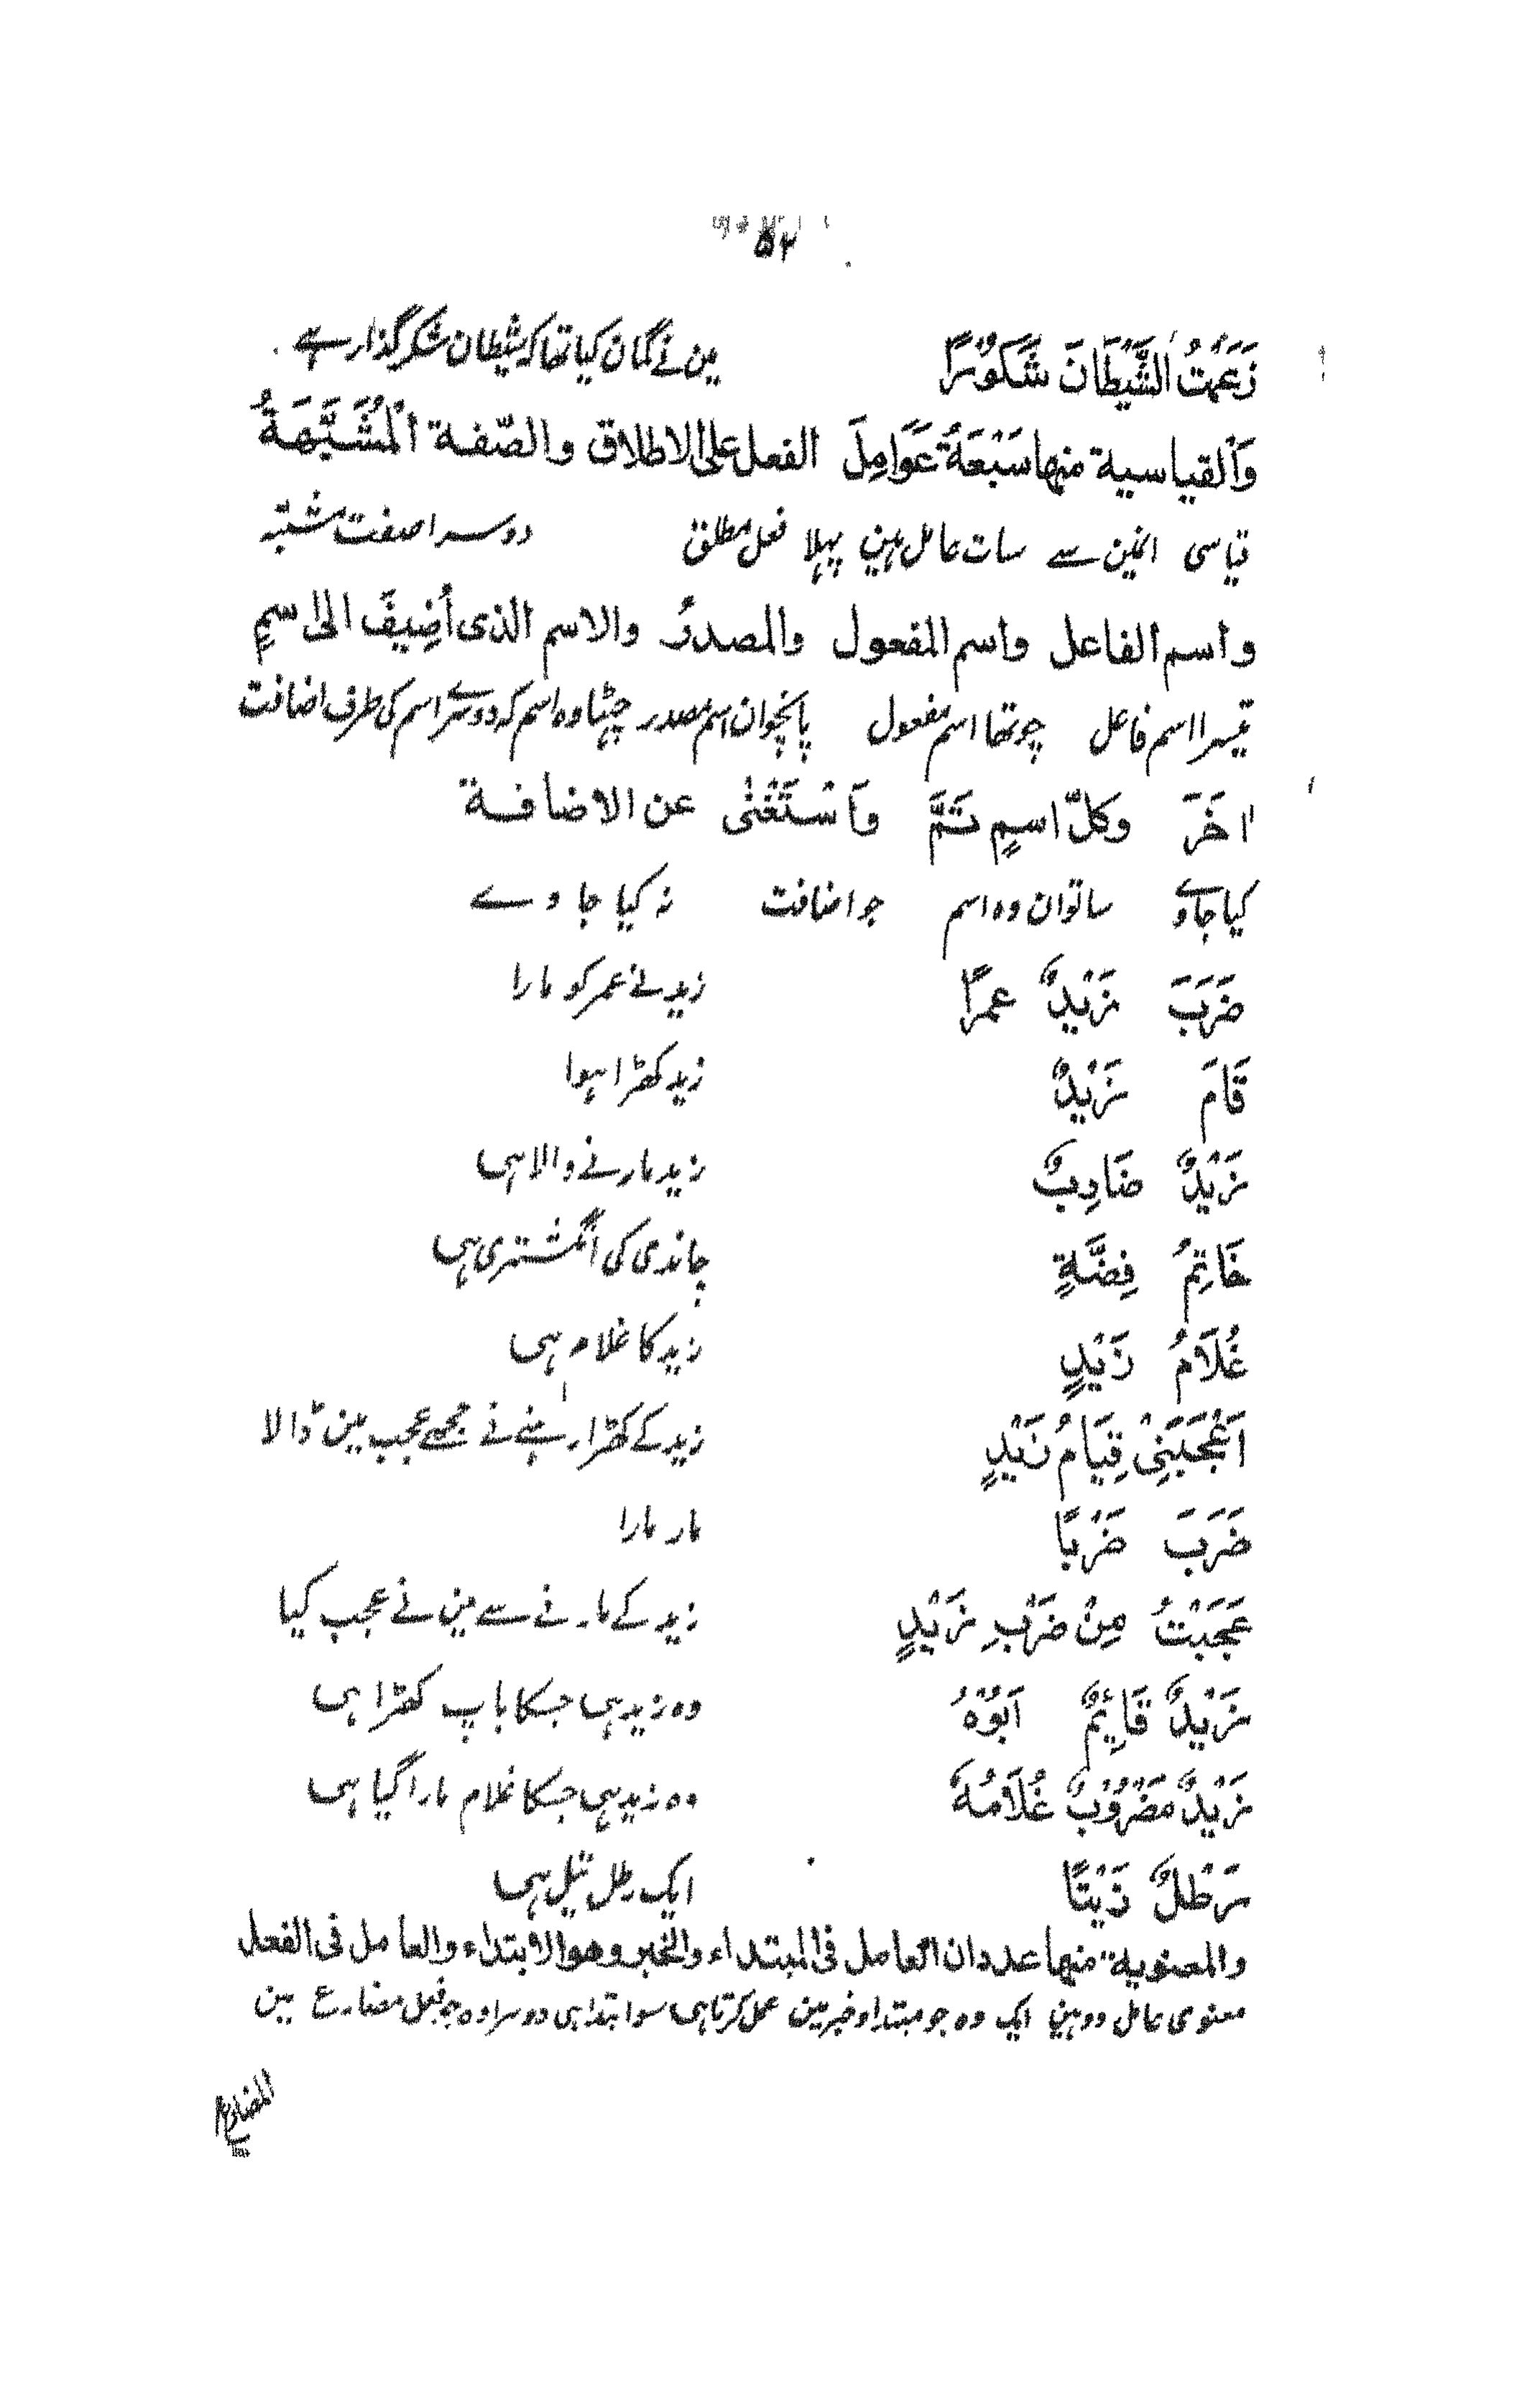 ۵۲
زَعَمْتُ الشَّيْطَانَ شَكُوْرًا مین نے گمان کیا تھا کہ شیطان شکر گذار ہے
وَالْقياسية منها سَبْعَةُ عَوَامِلَ الفعل على الاطلاق والصّفة الْمُشَبَّهَةُ
قیاسی انمین سے سات عامل ہین پہلا فعل مطلق دوسرا صفت مشبّہ
واسم الفاعل واسم المفعول والمصدرُ والاسم الذى أُضِيفَ الىٰ اسمٍ
تیسرا اسم فاعل چوتھا اسم مفعول پانچوان اسم مصدر چھٹا وہ اسم کہ دوسرے اسم کی طرف اضافت
اٰخَرَ وكلّ اسمٍ تَمَّ وَاسْتَغْنٰى عن الاضافة
کیا جاوے ساتوان وہ اسم جو اضافت نہ کیا جاوے
ضَرَبَ زَيْدٌ عمرًا زید نے عمر کو مارا
قَامَ زَيْدٌ زید کھڑا ہوا
زَيْدٌ ضَارِبٌ زید مارنے والا ہی
خَاتِمُ فِضَّةٍ چاندی کی انگشتری ہی
غُلَامُ زَيْدٍ زید کا غلام ہی
اَعْجَبَنِىْ قِيَامُ زَيْدٍ زید کے کھڑا رہنے نے مجھے عجب مین ڈالا
ضَرَبَ ضَرْبًا مار مارا
عَجَبْتُ مِنْ ضَرْبِ زَيْدٍ زید کے مارنے سے مین نے عجب کیا
زَيْدٌ قَائِمٌ اَبُوْهُ وہ زید ہی جسکا باپ کھڑا ہی
زَيْدٌ مَضْرُوْبٌ غُلَامُهٗ وہ زید ہی جسکا غلام مارا گیا ہی
رَطْلٌ زَيْتًا ایک رطل تیل ہی
والمعنوية منها عددان العامل فى المبتداء والخبر وهو الابتداء والعامل فى الفعل
معنوی عامل دو ہین ایک وہ جو مبتدا و خبر مین عمل کرتا ہی سو ابتدا ہی دوسرا وہ جو فعل مضارع مین
المضارع